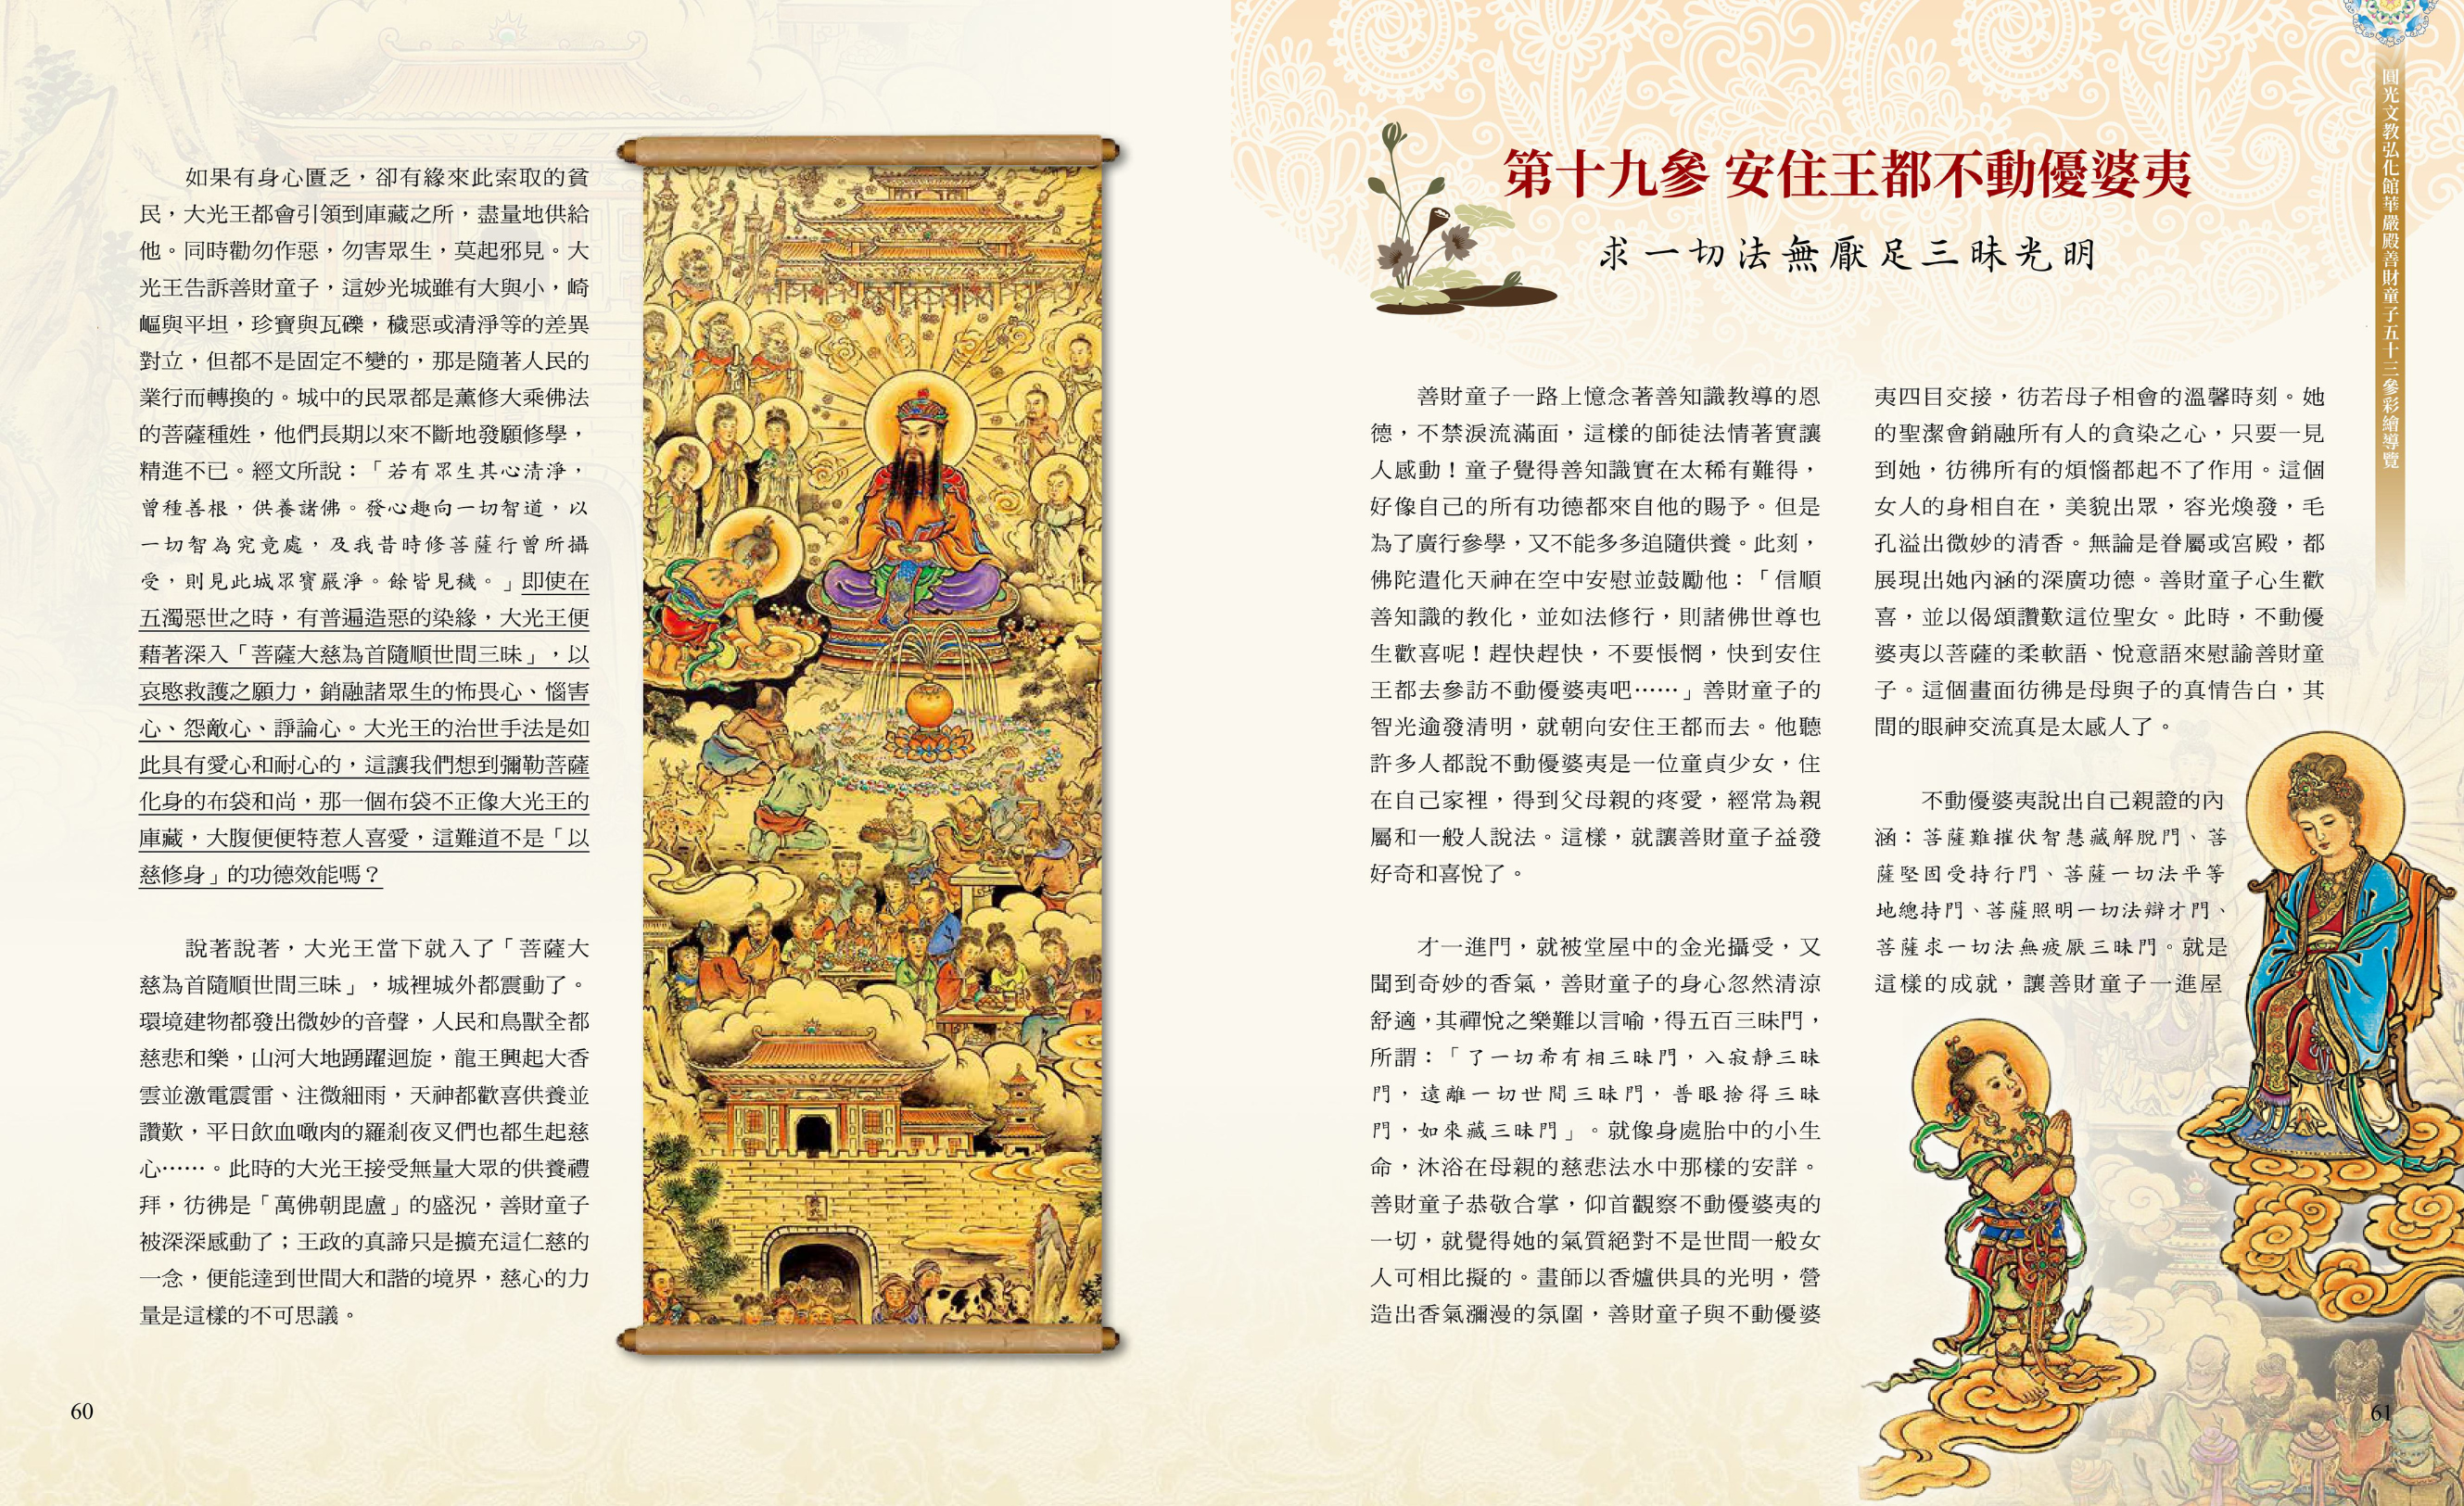 如果有身心匱乏，卻有緣來此索取的貧
民，大光王都會引領到庫藏之所，盡量地供給
他。同時勸勿作惡，勿害眾生，莫起邪見。大
光王告訴善財童子，這妙光城雖有大與小，崎
嶇與平坦，珍寶與瓦礫，穢惡或清淨等的差異
對立，但都不是固定不變的，那是隨著人民的
業行而轉換的。城中的民眾都是薰修大乘佛法
的菩薩種姓，他們長期以來不斷地發願修學，
精進不已。經文所說：「若有眾生其心清淨，
曾種善根，供養諸佛。發心趣向一切智道，以
一切智為究竟處，及我昔時修菩薩行曾所攝
受，則見此城眾寶嚴淨。餘皆見穢。」即使在
五濁惡世之時，有普遍造惡的染緣，大光王便
藉著深入「菩薩大慈為首隨順世間三昧」，以
哀愍救護之願力，銷融諸眾生的怖畏心、惱害
心、怨敵心、諍論心。大光王的治世手法是如
此具有愛心和耐心的，這讓我們想到彌勒菩薩
化身的布袋和尚，那一個布袋不正像大光王的
庫藏，大腹便便特惹人喜愛，這難道不是「以
慈修身」的功德效能嗎？
說著說著，大光王當下就入了「菩薩大
慈為首隨順世間三昧」，城裡城外都震動了。
環境建物都發出微妙的音聲，人民和鳥獸全都
慈悲和樂，山河大地踴躍迴旋，龍王興起大香
雲並激電震雷、注微細雨，天神都歡喜供養並
讚歎，平日飲血噉肉的羅剎夜叉們也都生起慈
心⋯⋯。此時的大光王接受無量大眾的供養禮
拜，彷彿是「萬佛朝毘盧」的盛況，善財童子
被深深感動了；王政的真諦只是擴充這仁慈的
一念，便能達到世間大和諧的境界，慈心的力
量是這樣的不可思議。
60
第十九參 安住王都不動優婆夷
求一切法無厭足三昧光明
善財童子一路上憶念著善知識教導的恩
德，不禁淚流滿面，這樣的師徒法情著實讓
人感動！童子覺得善知識實在太稀有難得，
好像自己的所有功德都來自他的賜予。但是
為了廣行參學，又不能多多追隨供養。此刻，
佛陀遣化天神在空中安慰並鼓勵他：「信順
善知識的教化，並如法修行，則諸佛世尊也
生歡喜呢！趕快趕快，不要悵惘，快到安住
王都去參訪不動優婆夷吧⋯⋯」善財童子的
智光逾發清明，就朝向安住王都而去。他聽
許多人都說不動優婆夷是一位童貞少女，住
在自己家裡，得到父母親的疼愛，經常為親
屬和一般人說法。這樣，就讓善財童子益發
好奇和喜悅了。
才一進門，就被堂屋中的金光攝受，又
聞到奇妙的香氣，善財童子的身心忽然清涼
舒適，其禪悅之樂難以言喻，得五百三昧門，
所謂：「了一切希有相三昧門，入寂靜三昧
門，遠離一切世間三昧門，普眼捨得三昧
門，如來藏三昧門」。就像身處胎中的小生
命，沐浴在母親的慈悲法水中那樣的安詳。
善財童子恭敬合掌，仰首觀察不動優婆夷的
一切，就覺得她的氣質絕對不是世間一般女
人可相比擬的。畫師以香爐供具的光明，營
造出香氣瀰漫的氛圍，善財童子與不動優婆
夷四目交接，彷若母子相會的溫馨時刻。她
的聖潔會銷融所有人的貪染之心，只要一見
到她，彷彿所有的煩惱都起不了作用。這個
女人的身相自在，美貌出眾，容光煥發，毛
孔溢出微妙的清香。無論是眷屬或宮殿，都
展現出她內涵的深廣功德。善財童子心生歡
喜，並以偈頌讚歎這位聖女。此時，不動優
婆夷以菩薩的柔軟語、悅意語來慰諭善財童
子。這個畫面彷彿是母與子的真情告白，其
間的眼神交流真是太感人了。
不動優婆夷說出自己親證的內
涵：菩薩難摧伏智慧藏解脫門、菩
薩堅固受持行門、菩薩一切法平等
地總持門、菩薩照明一切法辯才門、
菩薩求一切法無疲厭三昧門。就是
這樣的成就，讓善財童子一進屋
圓光文教弘化館華嚴殿善財童子五十三參彩繪導覽
61